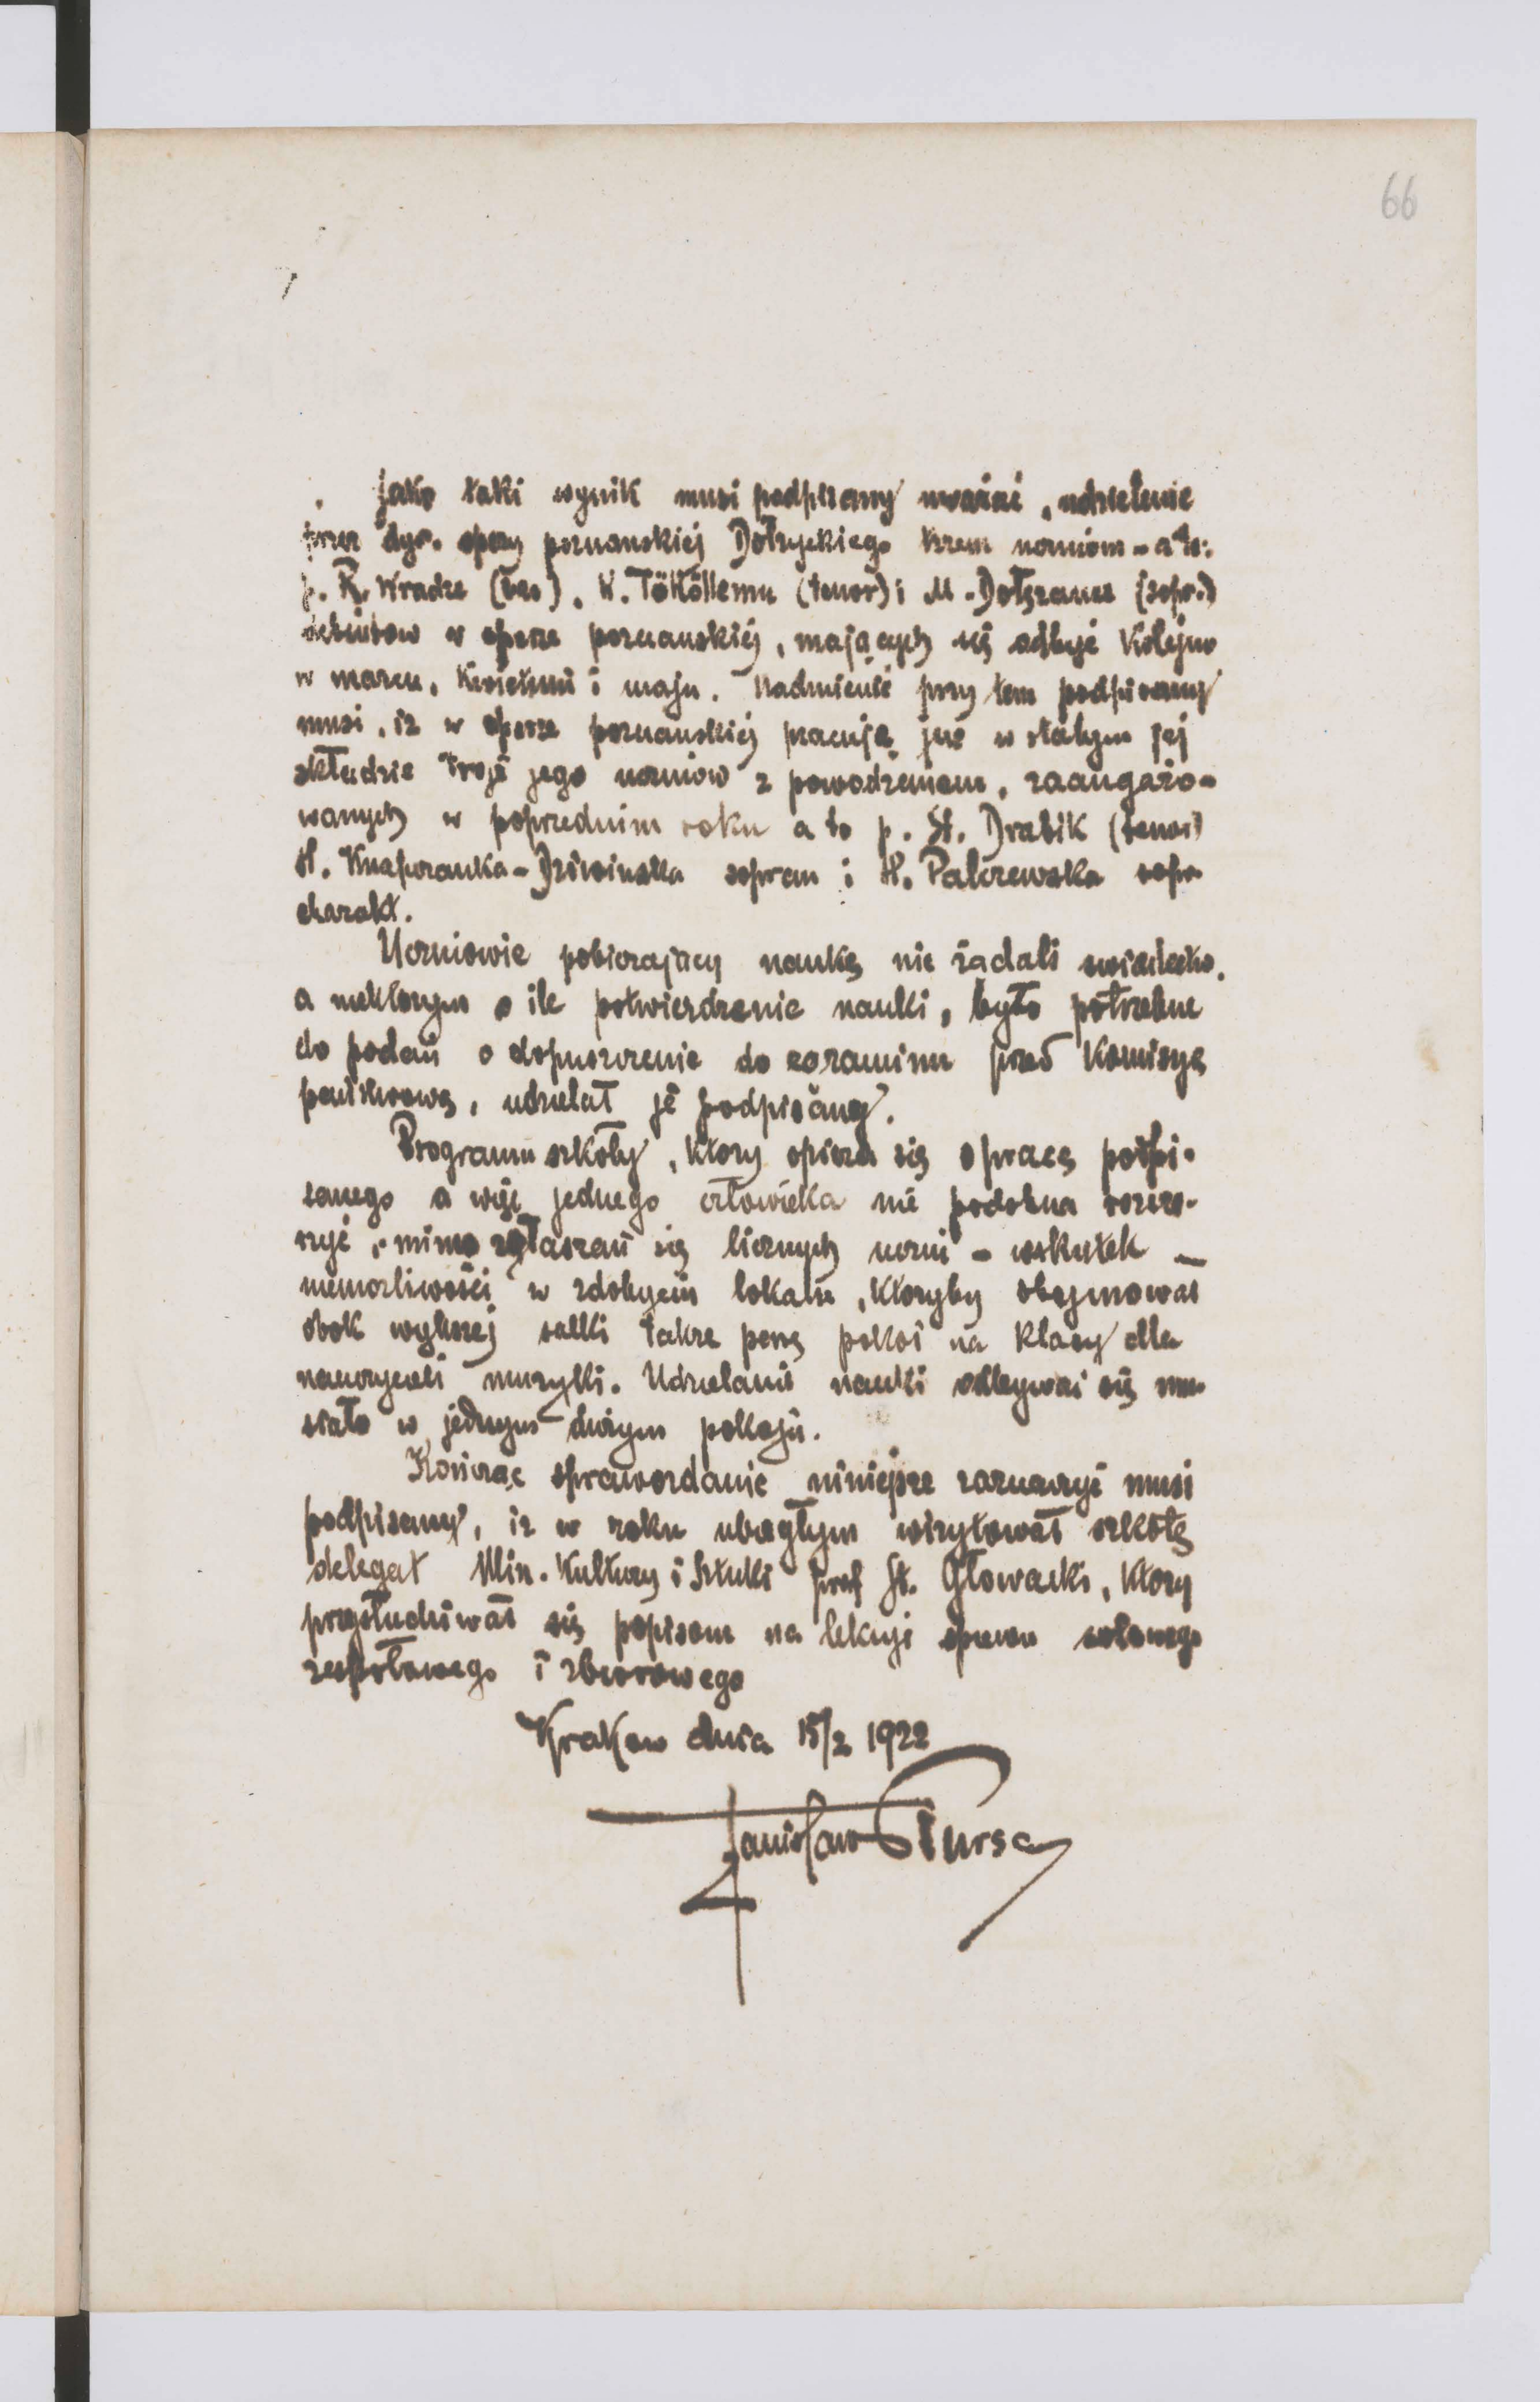 66
Jako taki wynik musi podpisany uważać, udzielenie
przez dyr. opery poznańskiej Dołżyckiego trzem uczniom - a to:
p. R. Wradze (bas), W. Tököllemu (tenor) i M. (sopr.)
debiutow w operze poznanskiej, mających się odbyć kolejno
w marcu, kwietniu i maju. Nadmienić przy tem podpisany
musi, iz w operze poznańskiej pracuje już w stałym jej
składzie troje jego uczniow z powodzeniem, zaangażo-
wanych w poprzednim roku a to p. St. Drabik (tenor)
H. - Dziwinska sopran i H. Palczewska sopr
charakt.
Uczniowie pobierający naukę nie żądali swiadectw,
a niektorym o ile potwierdzenie nauki, było potrzebne
do podań o dopuszczenie do egzaminu przed Komisyę
panstwową, udzielał je podpisany.
Programu szkoły, ktory opiera się o pracę podpi-
sanego a więc jednego człowieka nie podobna rozsze-
rzyć, mimo zgłaszań się licznych uczni - wskutek -
niemożliwości w zdobyciu lokalu, ktoryby obejmował
obok wększej salki takze parę pokoi na klasy dla
nauczycieli muzyki. Udzielanie nauki odbywać się mu-
siało w jednym dużym pokoju.
Kończąc sprawozdanie niniejsze zaznaczyć musi
podpisany, iz w roku ubiegłym wizytował szkołę
delegat Min. Kultury i Sztuki prof St. Głowacki, ktory
przysłuchiwał się popisom na lekcyi śpiewu solowego
zespołowego i zbiorowego
Krakow dnia 15/2 1922
Stanisław Bursa